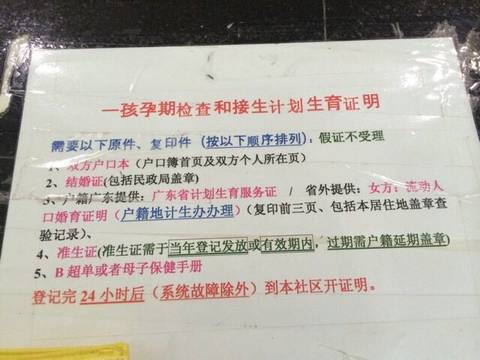 一孩孕期检查和接生计划生育证明
需要以下原件、复印件（按以下顺序排列）：假证不受理
1、双方户口本（户口簿首页及双方个人所在页）
2、结婚证(包括民政局盖章)
3、户籍广东提供：广东省计划生育服务证 / 省外提供：女方：流动人
口婚育证明（户籍地计生办办理）（复印前三页、包括本居住地盖章查
验记录）、
4、准生证(准生证需于当年登记发放或有效期内，过期需户籍延期盖章)
5、B 超单或者母子保健手册
登记完 24 小时后（系统故障除外）到本社区开证明。